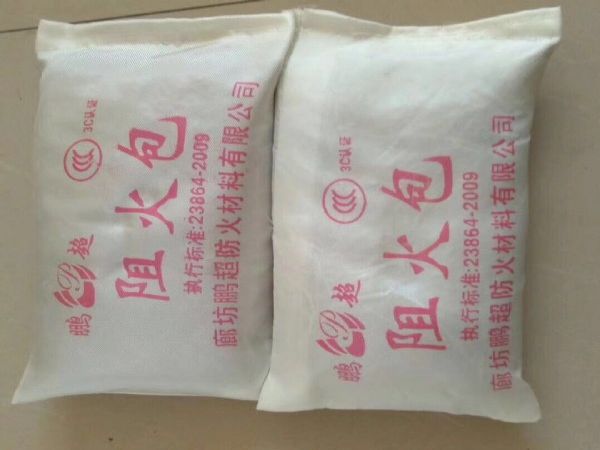 鹏 超 3C认证
阻火包
执行标准:23864-2009
廊坊鹏超防火材料有限公司
鹏 超 3C认证
阻火包
执行标准:23864-2009
廊坊鹏超防火材料有限公司